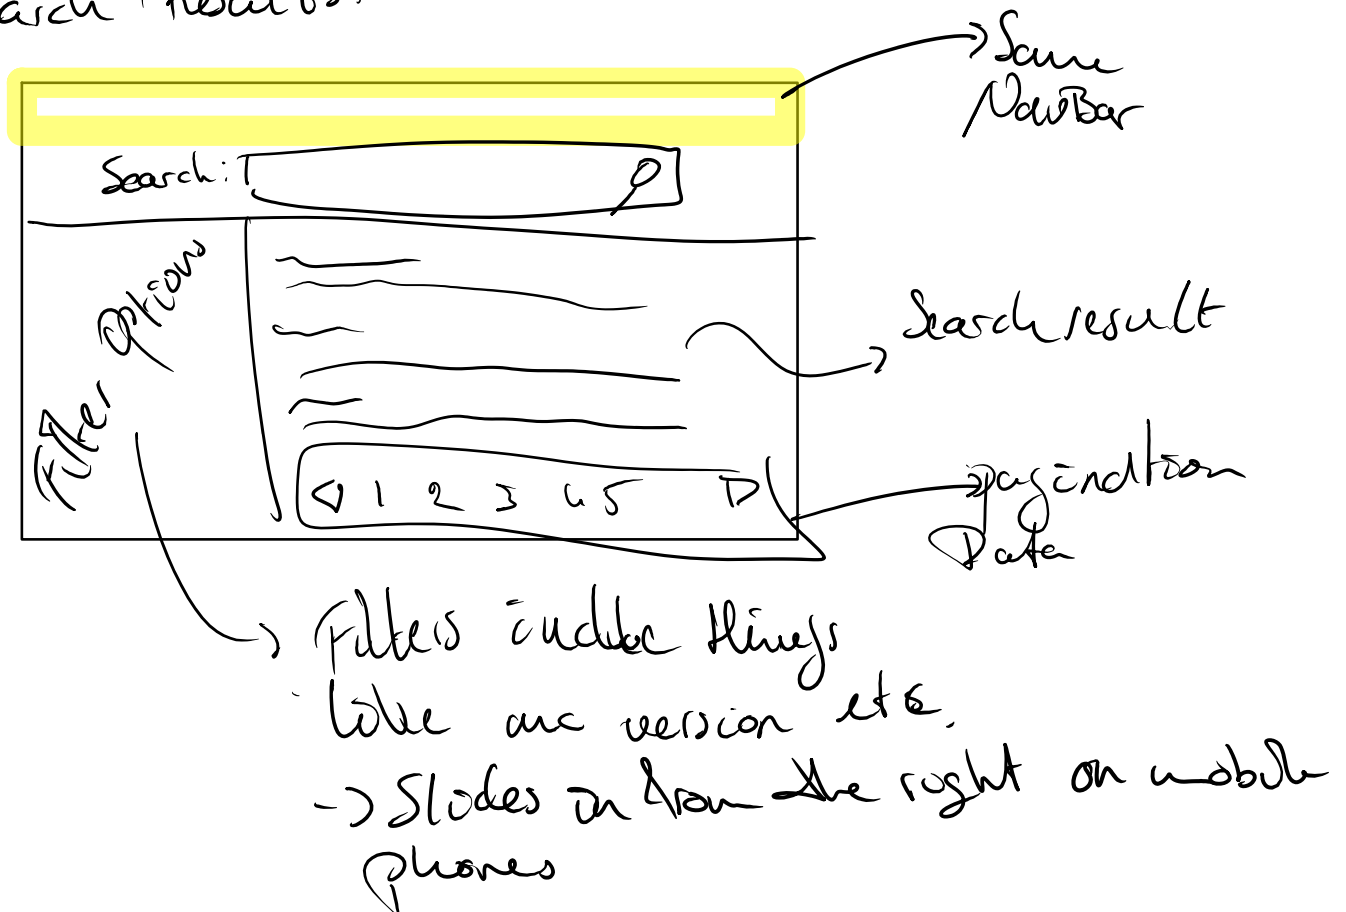 Search Results:
Same
NavBar
Search:
Filter Options
Search result
1 2 3 4 5
pagination
Data
Filters include things
like mc version etc.
-> Slides in from the right on mobile
phones